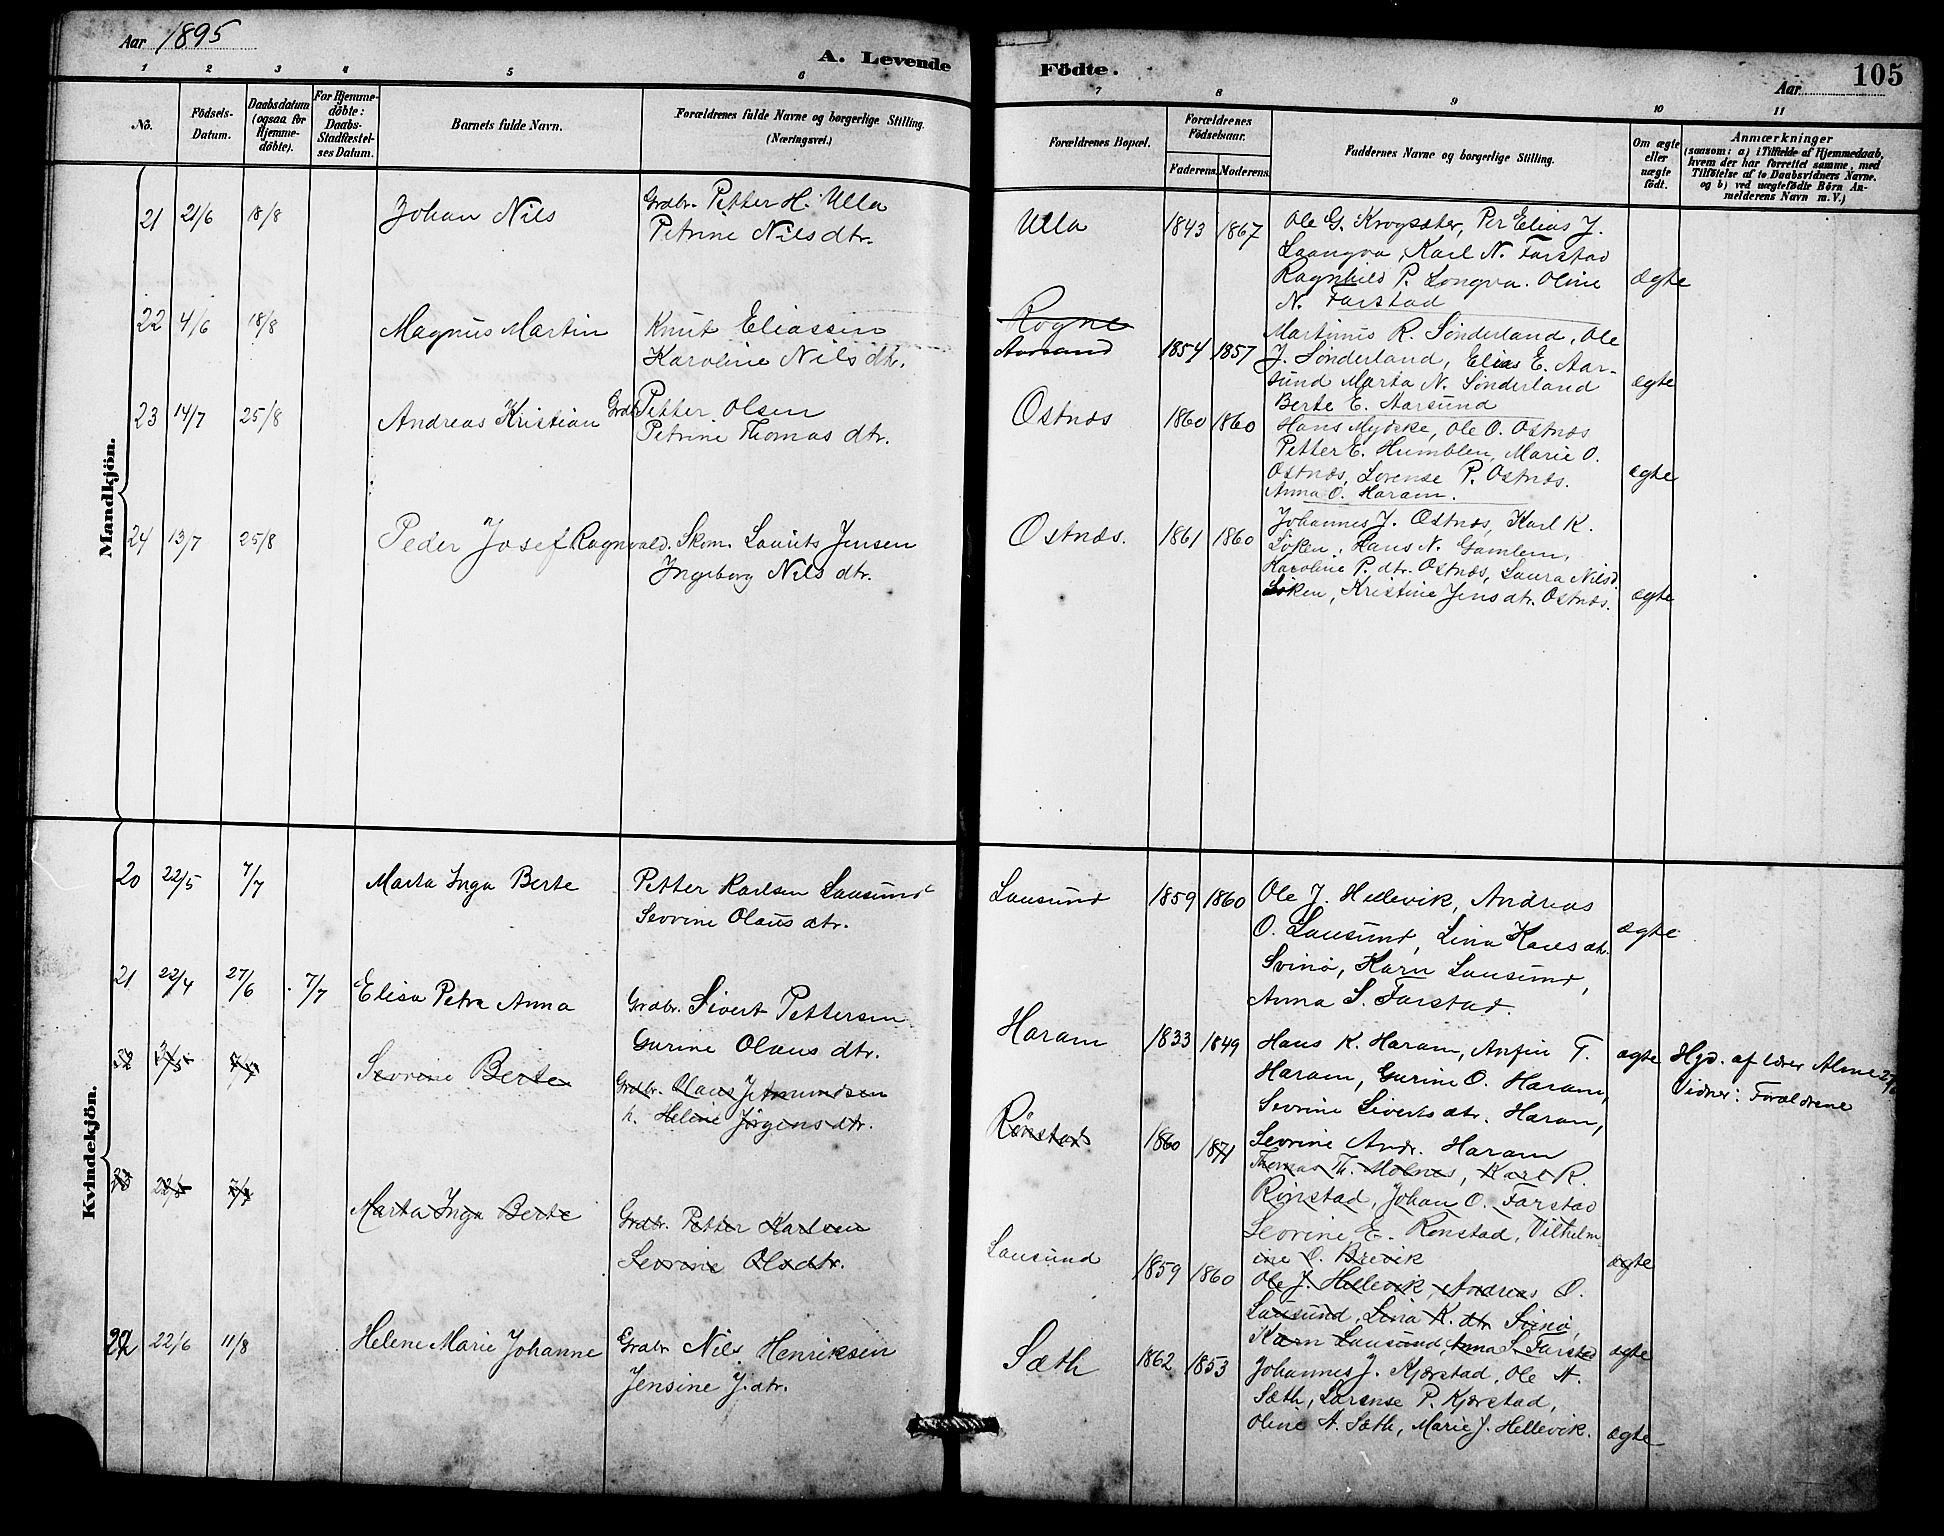 Aar 1895
A. Levende Födte.
Aar
105
1 2 3 4 5 6 7 8 9 10 11
No.
Födsels-Datum.
Daabsdatum (ogsaa for Hjemme-döbte).
For Hjemme-döbte: Daabs-Stadfæstel-ses Datum.
Barnets fulde Navn.
Forældrenes fulde Navne og borgerlige Stilling.
(Næringsvei.)
Forældrenes Bopæl.
Forældrenes Födselsaar.
Faderens. Moderens.
Faddernes Navne og borgerlige Stilling.
Om ægte eller uægte födt.
Anmærkninger
(saasom: a) i Tilfælde af Hjemmedaab,
hvem der har forrettet samme, med
Tilföielse af to Daabsvidners Navne.
og b) ved uægtefödte Börn An-
melderens Navn m. V.)
Mandkjön.
21 21/6 18/8 Johan Nils Grdbr. Petter H. Ulla
Petrine Nilsdtr.
Ulla 1843 1867 Ole G. Krogsæter, Per Elias J.
Laangva, Karl N. Farstad
Ragnhild P. Longva. Oline
N. Farstad
ægte
22 4/6 18/8 Magnus Martin Knut Eliassen
Karoline Nilsdtr.
Rogne
Aarsund 1854 1857 Martinus R. Sønderland, Ole
J. Sønderland, Elias E. Aar-
sund Marta N. Sønderland
Berte E. Aarsund
ægte
23 14/7 25/8 Andreas Kristian Grdbr. Petter Olsen
Petrine Thomasdtr.
Ostnæs 1860 1860 Hans Ole O. Ostnæs
Petter E. Humblen, Marie O.
Ostnæs, Lorense P. Ostnæs.
Anna O. Haram.
ægte
24 13/7 25/8 Peder Josef Ragnvald. Skom. Laurits Jensen
Ingeborg Nilsdtr.
Ostnæs. 1861 1860 Johannes J. Ostnæs, Karl K.
Søken, Hans N. Gamlem,
Karoline P. dtr. Ostnæs, Laura Nilsd.
Søken, Kristine Jensdtr. Ostnæs.
ægte
Kvindekjön.
20 22/5 7/7 Marta Inga Berte Petter Karlsen Lausund
Sevrine Olausdtr.
Lausund 1859 1860 Ole J. Hellevik, Andreas
O. Lausund, Lina Karlsdtr.
Svinø, Karn Lausund,
Anna S. Farstad.
ægte
21 22/4 27/6 7/7 Elisa Petra Anna Grdbr. Sivert Pettersen
Gurine Olausdtr.
Haram 1833 1849 Hans K. Haram, Anfin T.
Haram, Gurine O. Haram,
Sevrine Sivertsdtr. Haram,
Sevrine Andr. Haram
ægte Hjd. af lærer Alme 27/6
Vidner: Forældrene
22 7/7 Sevrine Berte Grdbr. Olaus J. Amundsen
h. Heline Jörgensdtr.
Rønstad 1860 1871 Thomas Th. Molnes, Karl R.
Rønstad, Johan O. Farstad
Sevrine E. Rønstad, Vilhelm-
ine O. Brevik
ægte
23 22/5 7/7 Marta Inga Berte Grdbr. Petter Karlsen
Sevrine Olsdtr.
Lausund 1859 1860 Ole J. Hellevik, Andreas O.
Lausund, Lina K. dtr Svinø,
Karn Lausund, Anna S. Farstad
ægte
22 22/6 11/8 Helene Marie Johanne Grdbr Nils Henriksen
Jensine J. dtr.
Sæth 1862 1853 Johannes J. Kjærstad, Ole A.
Sæth, Lorense P. Kjærstad,
Oline A. Sæth, Marie J. Hellevik.
ægte